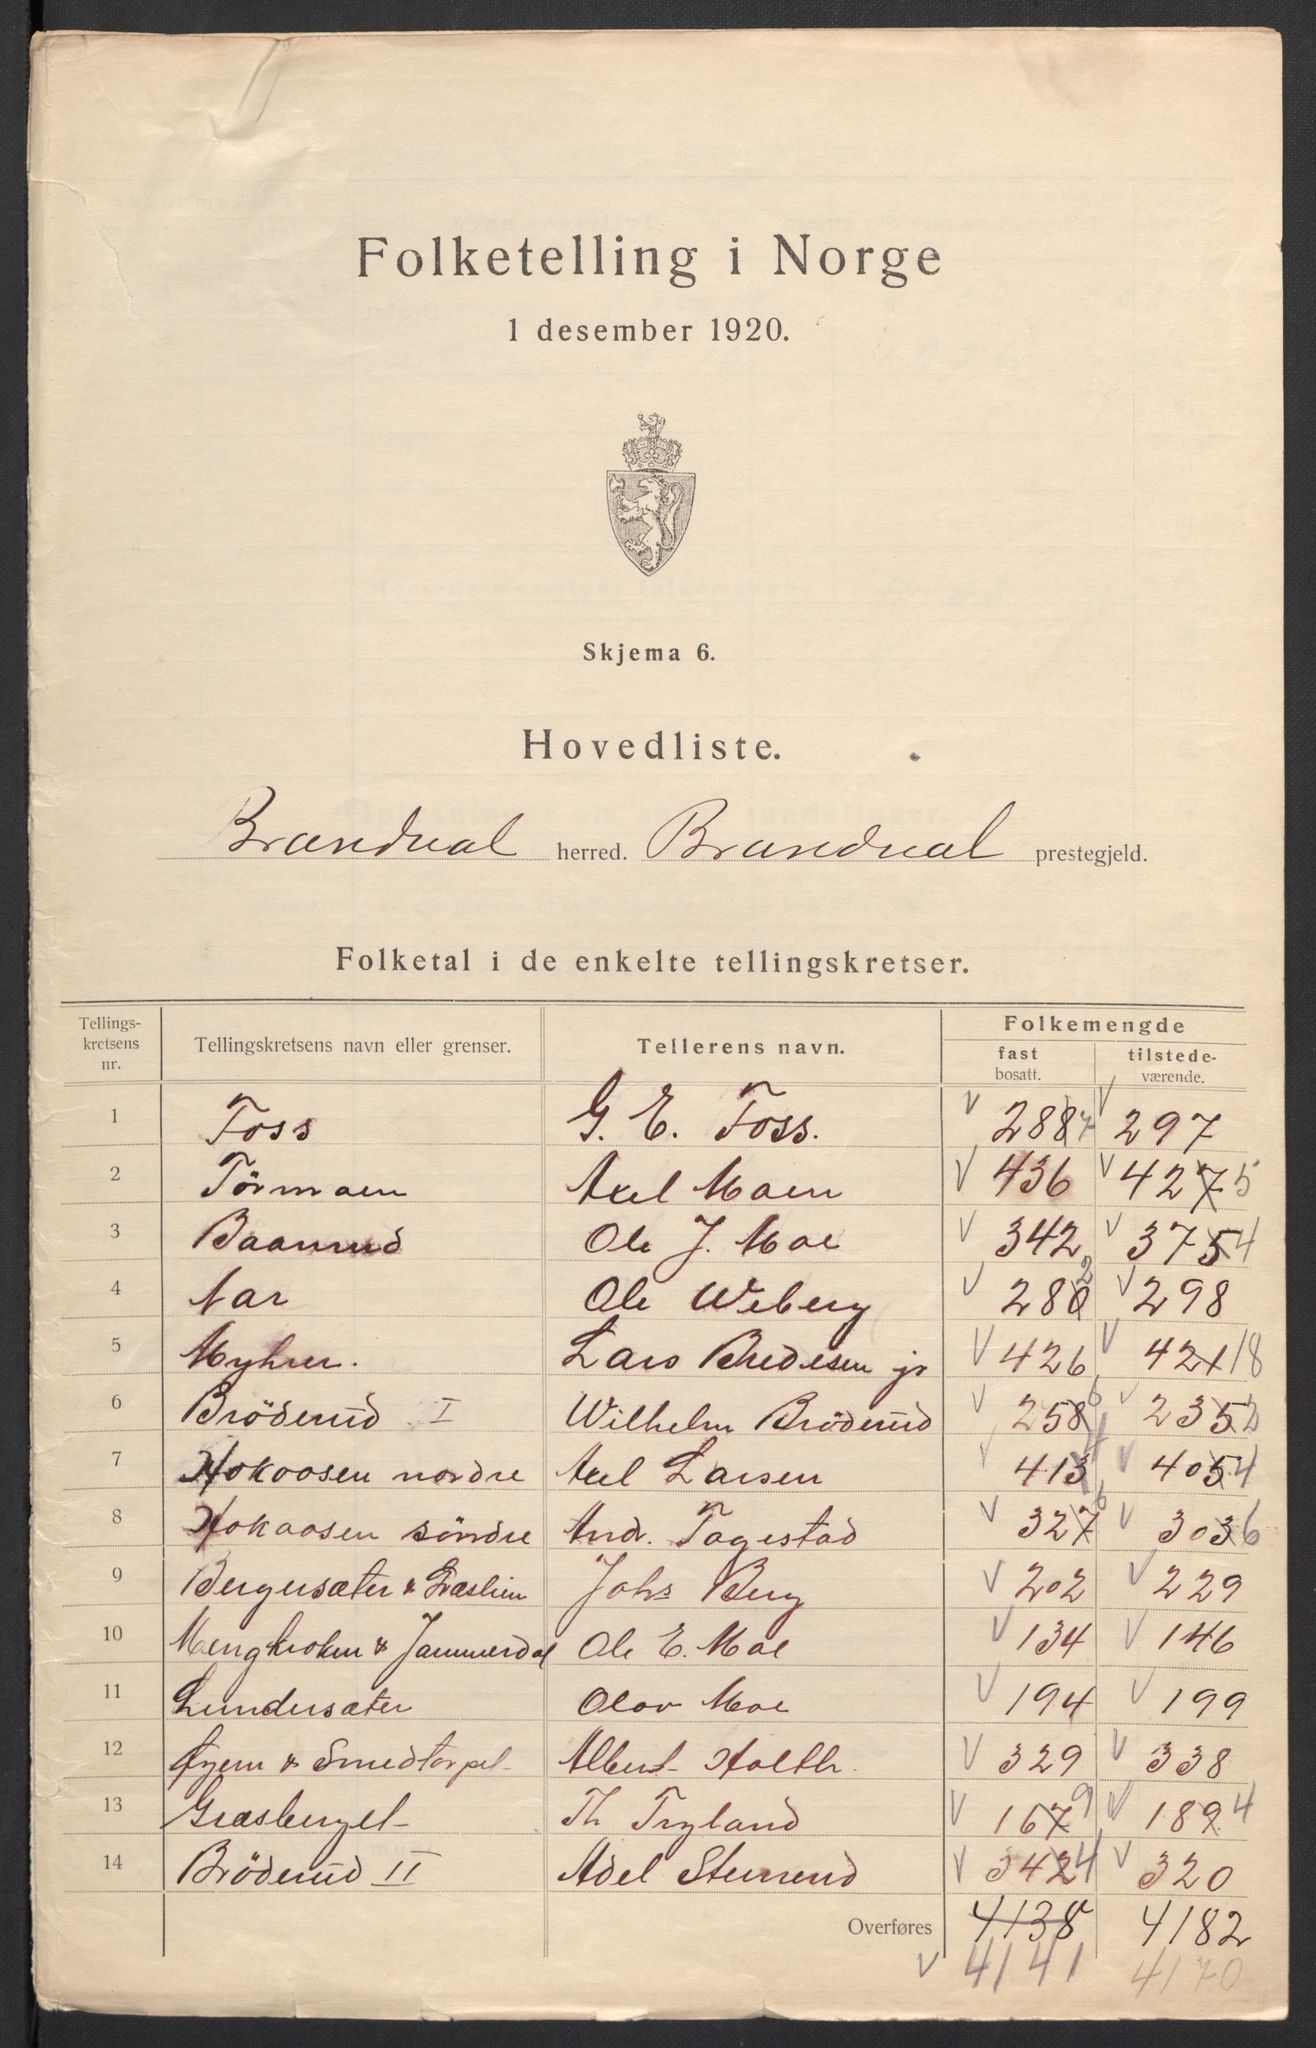 Folketelling i Norge
1 desember 1920.
Skjema 6.
Hovedliste.
Brandval herred. Brandval prestegjeld.
Folketal i de enkelte tellingskretser.
Tellings-kretsens nr. Tellingskretsens navn eller grenser. Tellerens navn. Folkemengde
fast bosatt. tilstede-værende.
1 Foss G. E. Foss. V 2887 V 297
2 Tørmoen Axel Moen V 436 V 4275
3 Baanrud Ole J. Moe V 342 V 3754
4 Nor Ole Weberg V 280 2 V 298
5 Myhrer. Lars Bredesen jr V 426 V 42118
6 Bröderud I Wilhelm Bröderud V 258 6 V 2352
7 Hokaasen nordre Axel Larsen V 413 4 V 4054
8 Hokaasen söndre Andr. Togestad V 327 6 V 3036
9 Bergersæter & Græslien Johs Berg V 202 V 229
10 Mengkroken & Jammerdal Ole E. Moe V 134 V 146
11 Lundersæter Olov Moe V 194 V 199
12 Øyern & Smedtorpet Albert Holth. V 329 V 338
13 Græsberget Th Tryland V 167 9 V 1894
14 Bröderud II Adel Stenerud V 3424 V 320
Overføres 4138 4182
V 4141 4170